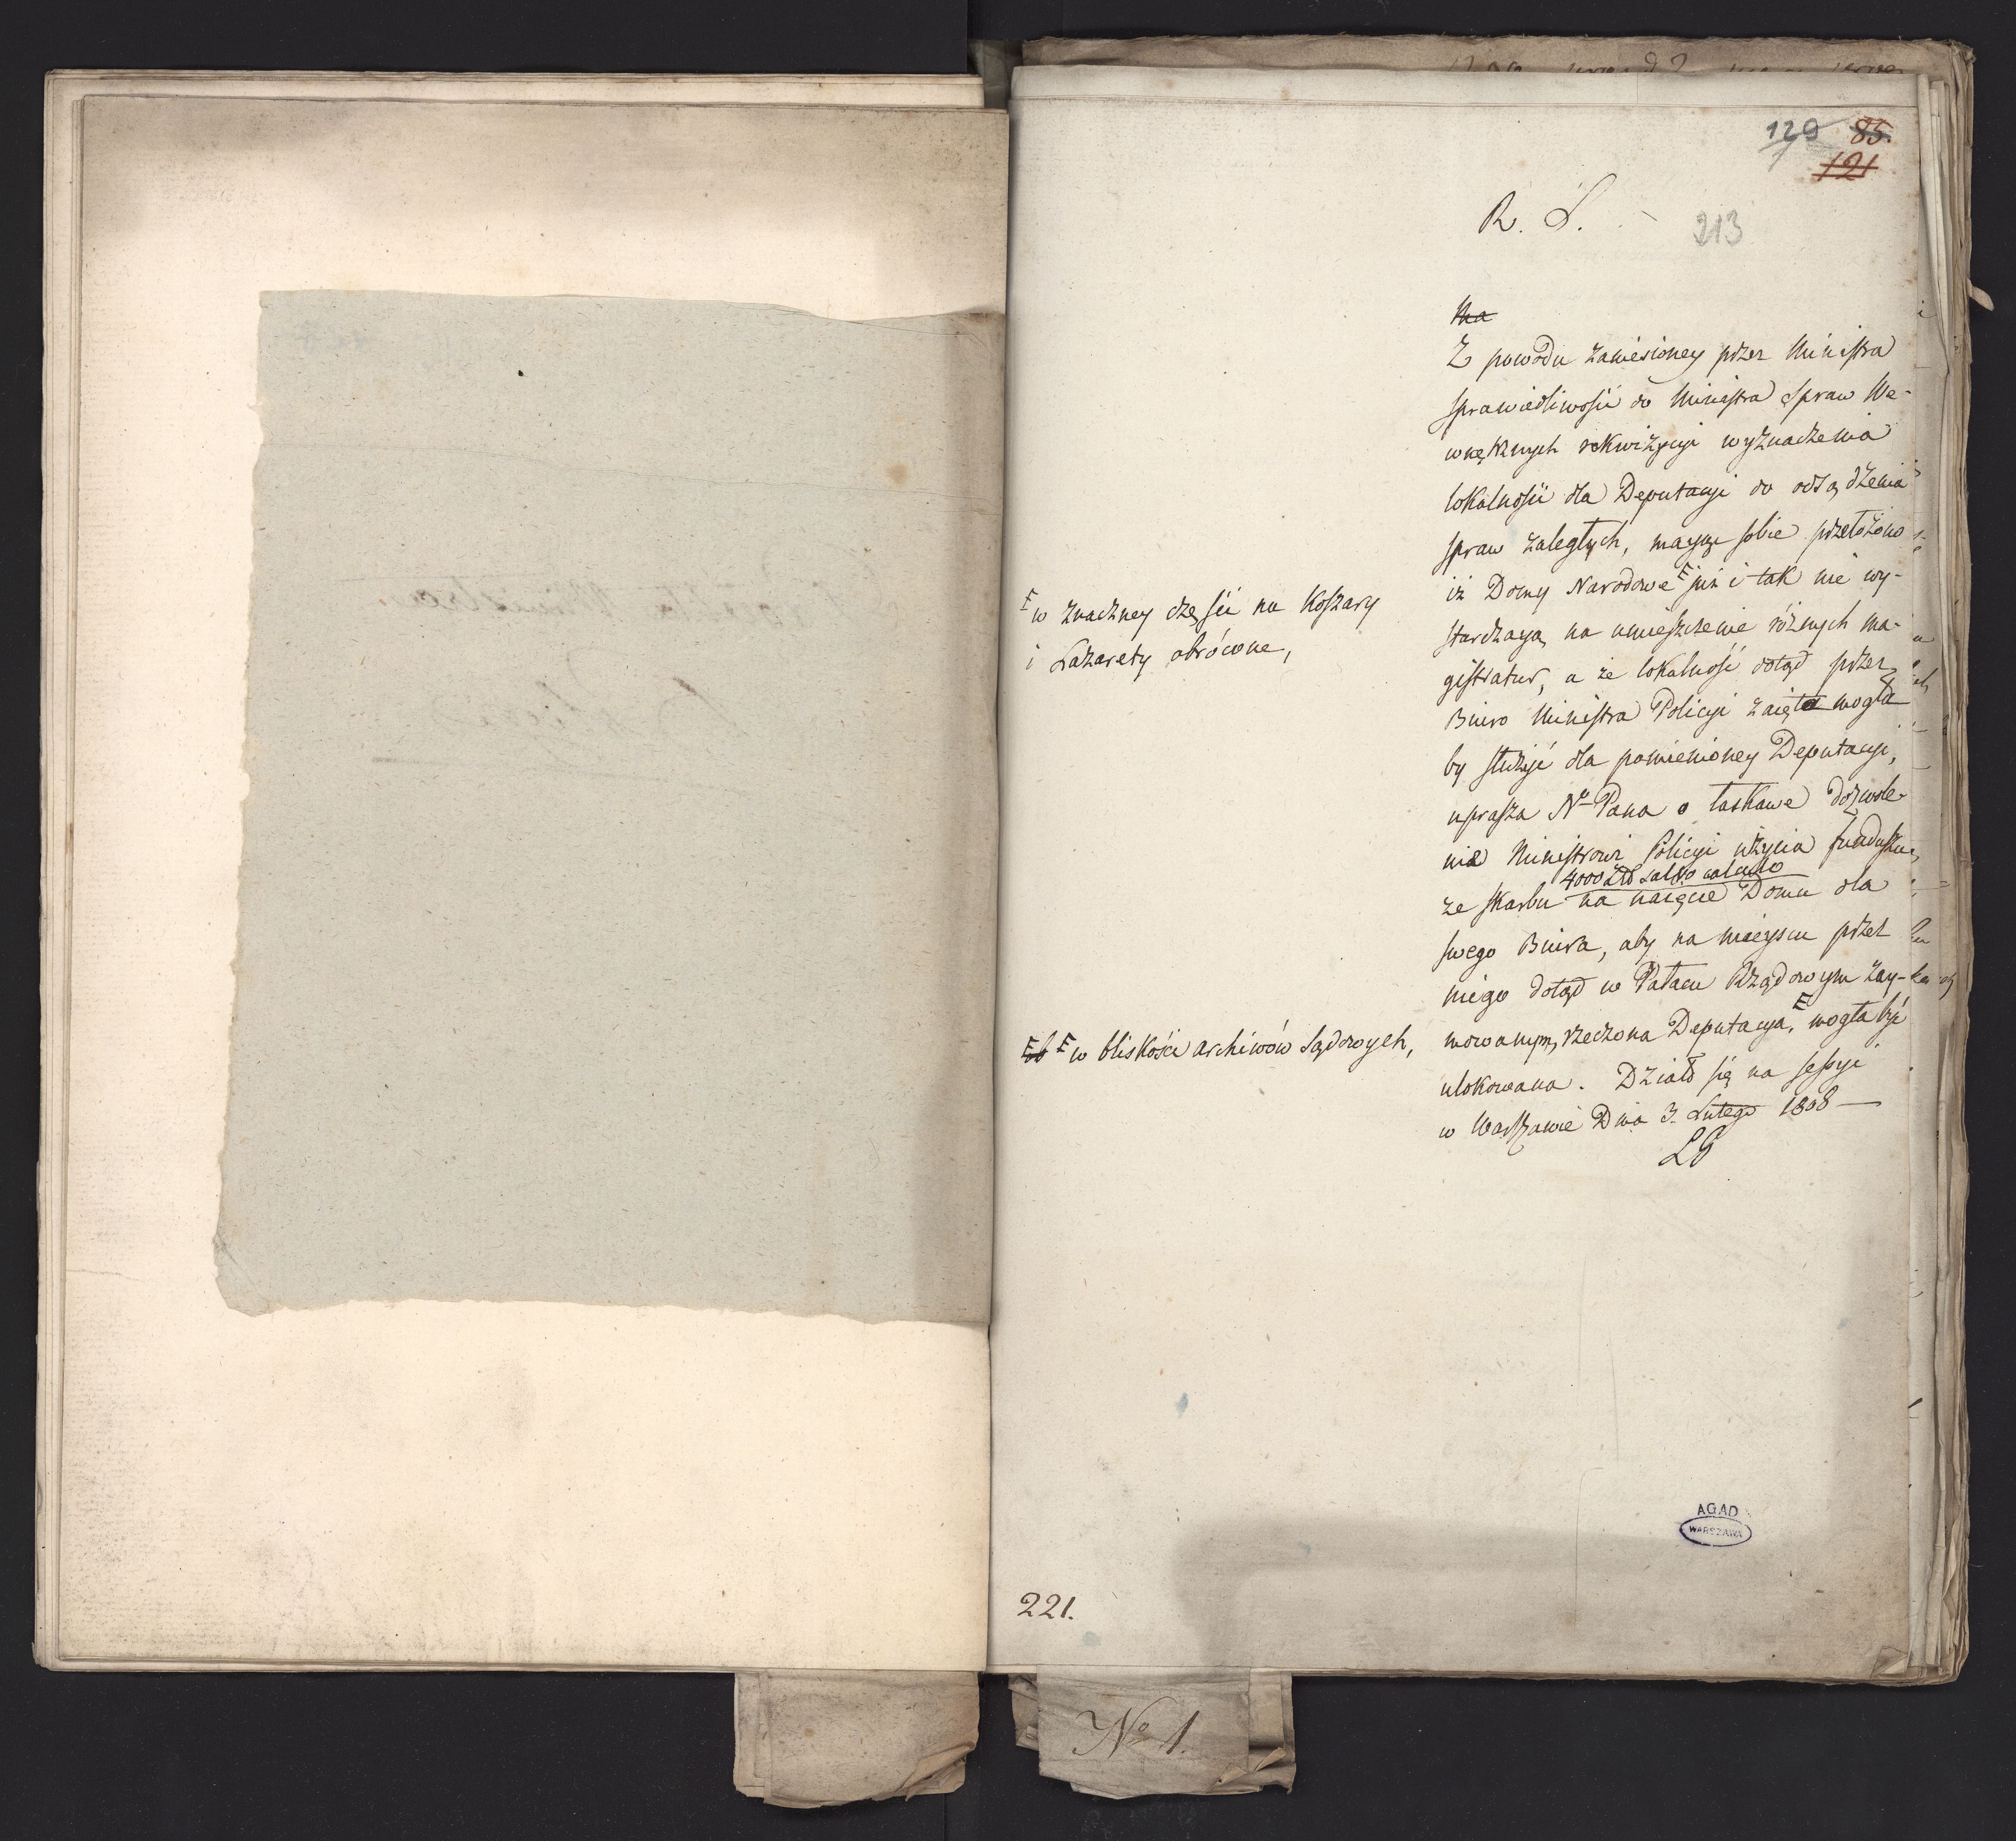 129 85.
121
R. S.
213
Ma
Z powodu zaniesioney przez Ministra
sprawiedliwości do Ministra Spraw We-
wnętrznych rekwizycyi wyznaczenia
lokalności dla Deputacyi do odsądzenia
spraw zaległych, maiąc sobie przełożono
iż Domy Narodowe już i tak nie wy-
starczaią na umieszczenie różnych ma-
gistratur, a że lokalność dotąd przez
Biuro Ministra Policyi zaięta mogła
by służyć dla pomienioney Deputacyi,
uprasza No Pana o łaskawe dozwole-
nie Ministrowi Policyi użycia funduszu
4000 Zł salvo calculo
ze skarbu na naięcie Domu dla
swego Biura, aby na mieyscu przez
niego dotąd w Pałacu Rządowym zay-
mowanym, rzeczona Deputacya, mogła być
ulokowana. Działo się na sessyi
w Warszawie Dnia 3. Lutego 1808
LG
w znaczney części na Koszary
i Lazarety obrócone,
w bliskości archiwów sądowych,
AGAD
WARSZAWA
221.
No 1.